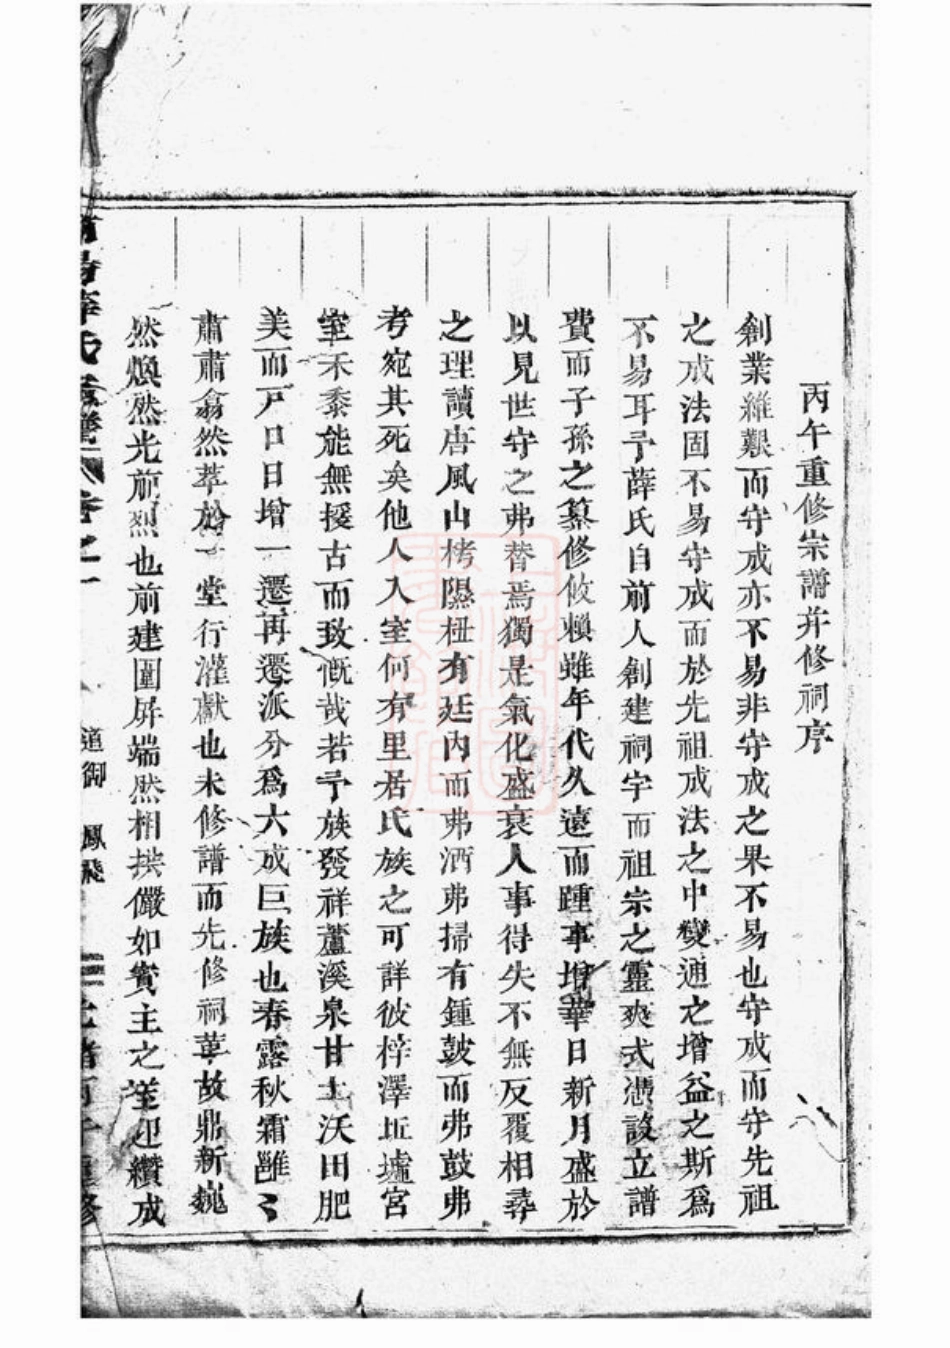 丙午重修宗譜并修祠序
創業維艱而守成亦不易非守成之果不易也守成而守先祖
之成法固不易守成而於先祖成法之中變通之增益之斯爲
不易耳予薛氏自前人創建祠宇而祖宗之靈爽式憑設立譜
費而子孫之纂修攸賴雖年代久遠而踵事增華日新月盛於
以見世守之弗替焉獨是氣化盛衰人事得失不無反覆相尋
之理讀唐風山栲隰杻有廷內而弗洒弗掃有鍾鼓而弗鼓弗
考宛其死矣他人入室何有里居氏族之可詳彼梓澤坵墟宮
室禾黍能無援古而致慨哉若予族發祥蘆溪泉甘土沃田肥
美而戶口日增一遷再遷派分爲六成巨族也春露秋霜雝〻
肅肅翕然萃於一堂行灌獻也未修譜而先修祠革故鼎新巍
然煥然光前烈也前建圍屏端然相拱儼如賓主之送迎纘成
薛氏 卷之一
道御 鳳飛